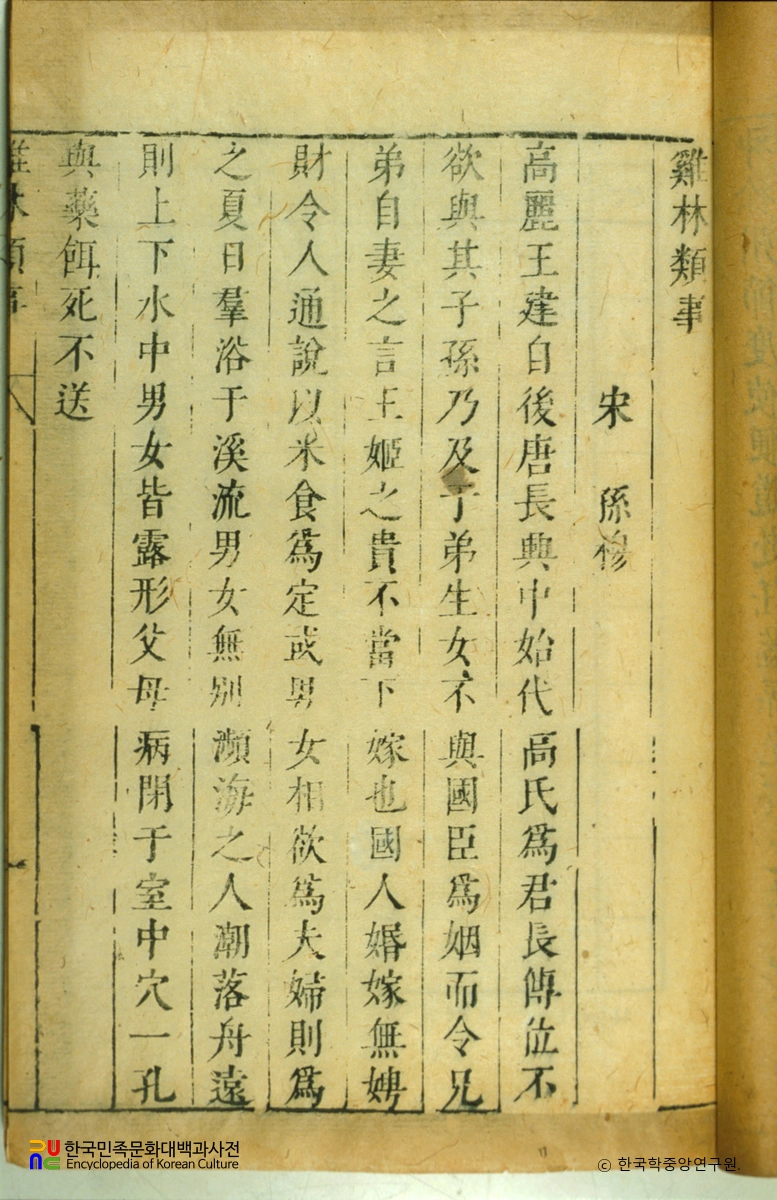 雞林類事
宋 孫穆
高麗王建自後唐長興中始代高氏爲君長傳位不
欲與其子孫乃及于弟生女不與國臣爲姻而令兄
弟自妻之言王姬之貴不當下嫁也國人婚嫁無娉
財令人通說以米食爲定或男女相欲爲夫婦則爲
之夏日羣浴于溪流男女無別瀕海之人潮落舟遠
則上下水中男女皆露形父母病閉于室中穴一孔
與藥餌死不送
雞林類事
한국민족문화대백과사전
Encyclopedia of Korean Culture
ⓒ 한국학중앙연구원.